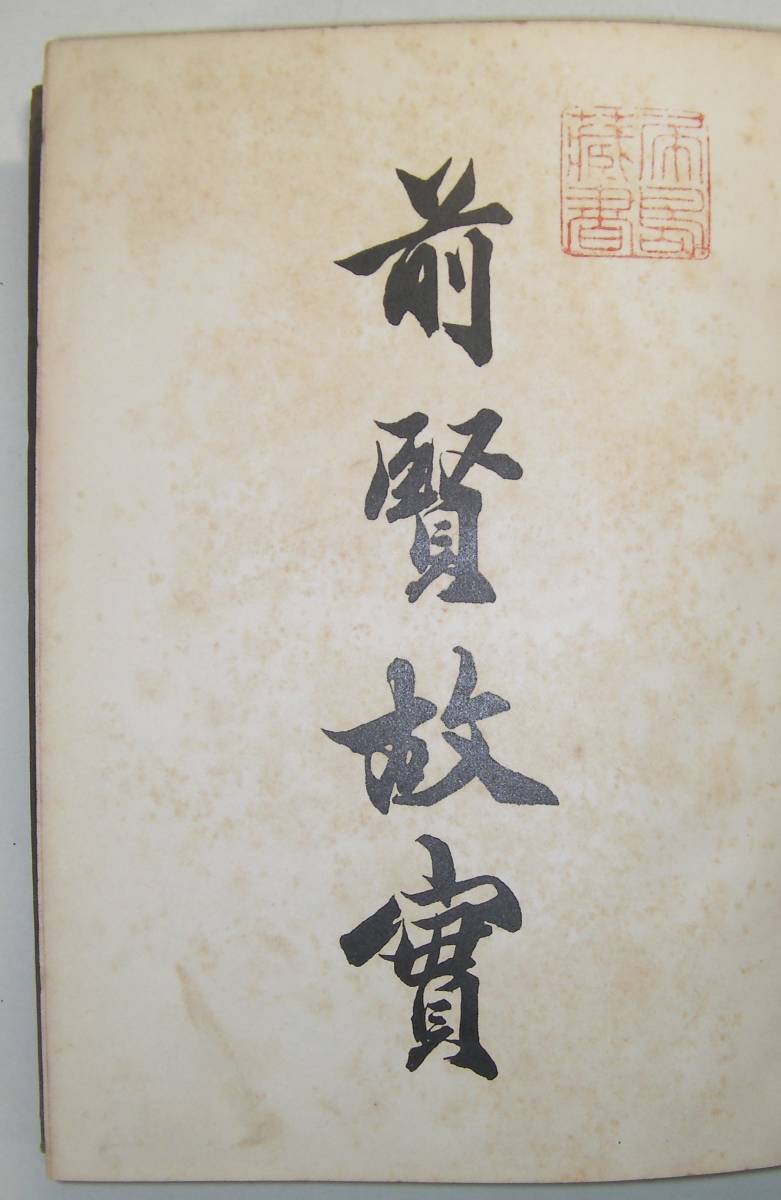 前賢故實
藏書